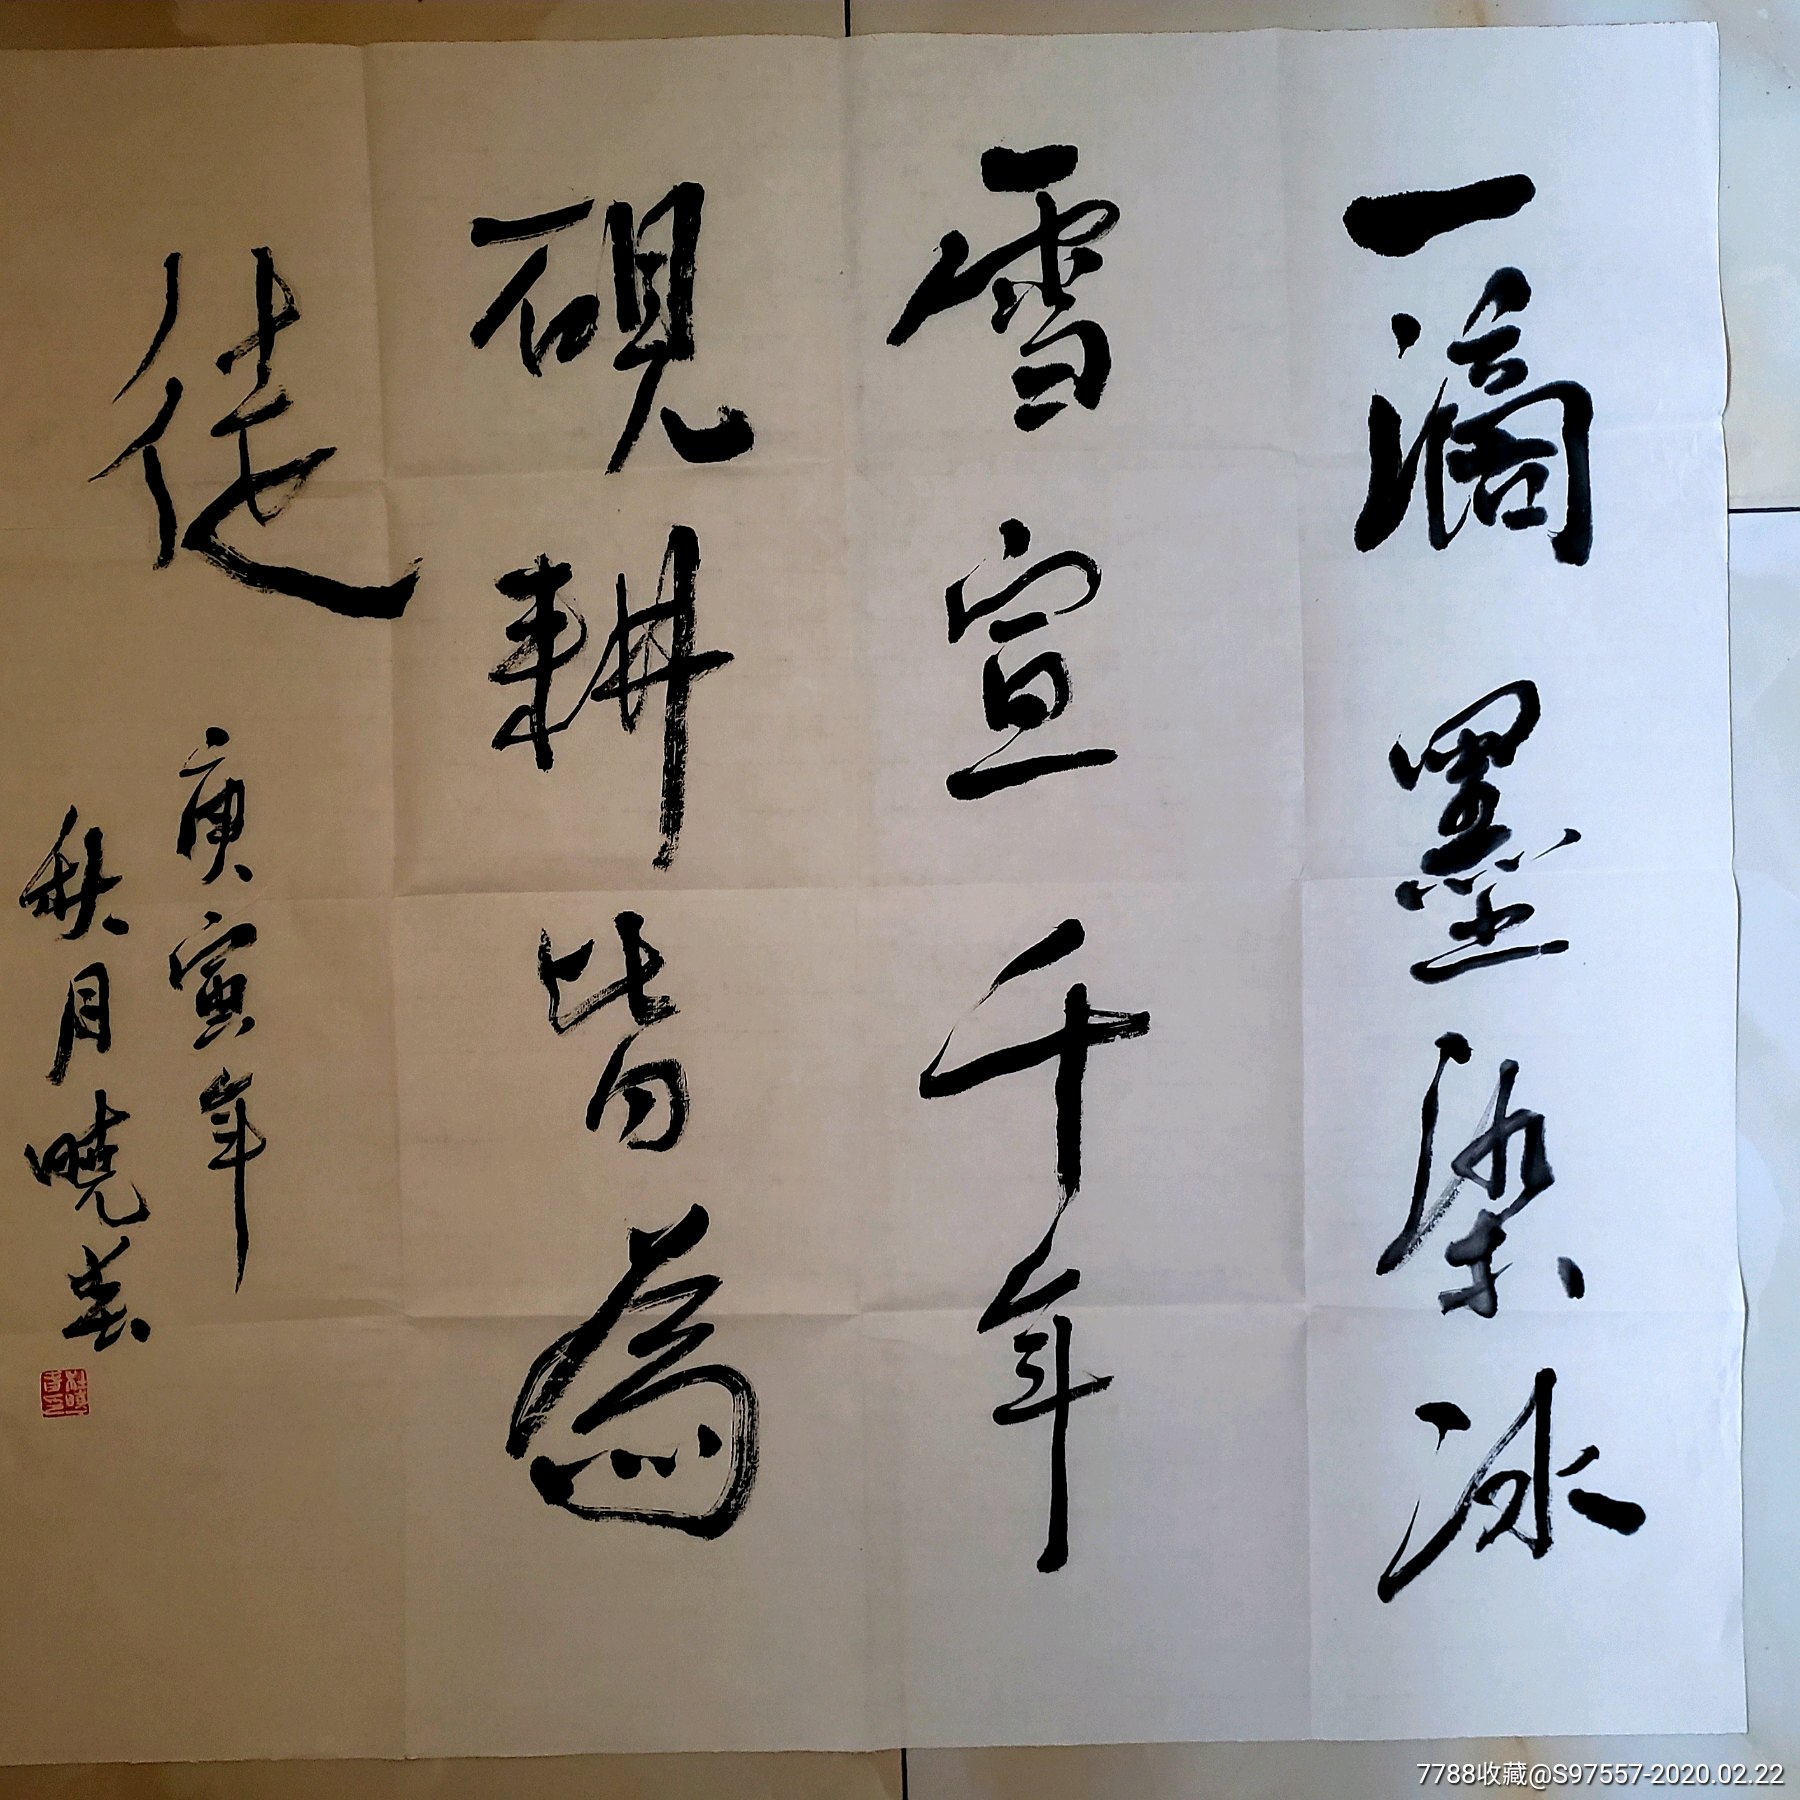 一滴墨染冰
雪宣千年
硯耕皆為
徒
庚寅年
秋月曉春
7788收藏@S97557-2020.02.22